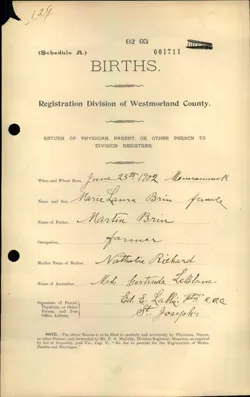 129
02 05
(Schedule A.)
001711
BIRTHS.
Registration Division of Westmorland County.
RETURN OF PHYSICIAN, PARENT, OR OTHER PERSON TO
DIVISION REGISTRAR.
When and Where Born, June 25th 1902 Memramcook
Name and Sex, Marie Laura Brin female
Name of Father, Martin Brin
Occupation, farmer
Maiden Name of Mother Nathalie Richard
Name of Attendant, Mrs Gertrude LeBlanc
Signature of Parent,
Physician, or Other
Person, and Post
Office Address
Ed. E. Labbé
St Joseph
NOTE.—The above Return is to be filled in carefully and accurately by Physician, Parent,
or other Person, and forwarded to
Division Registrar, Moncton, as required
by Act of Assembly,
"An Act to provide for the Registration of Births,
Deaths and Marriages."